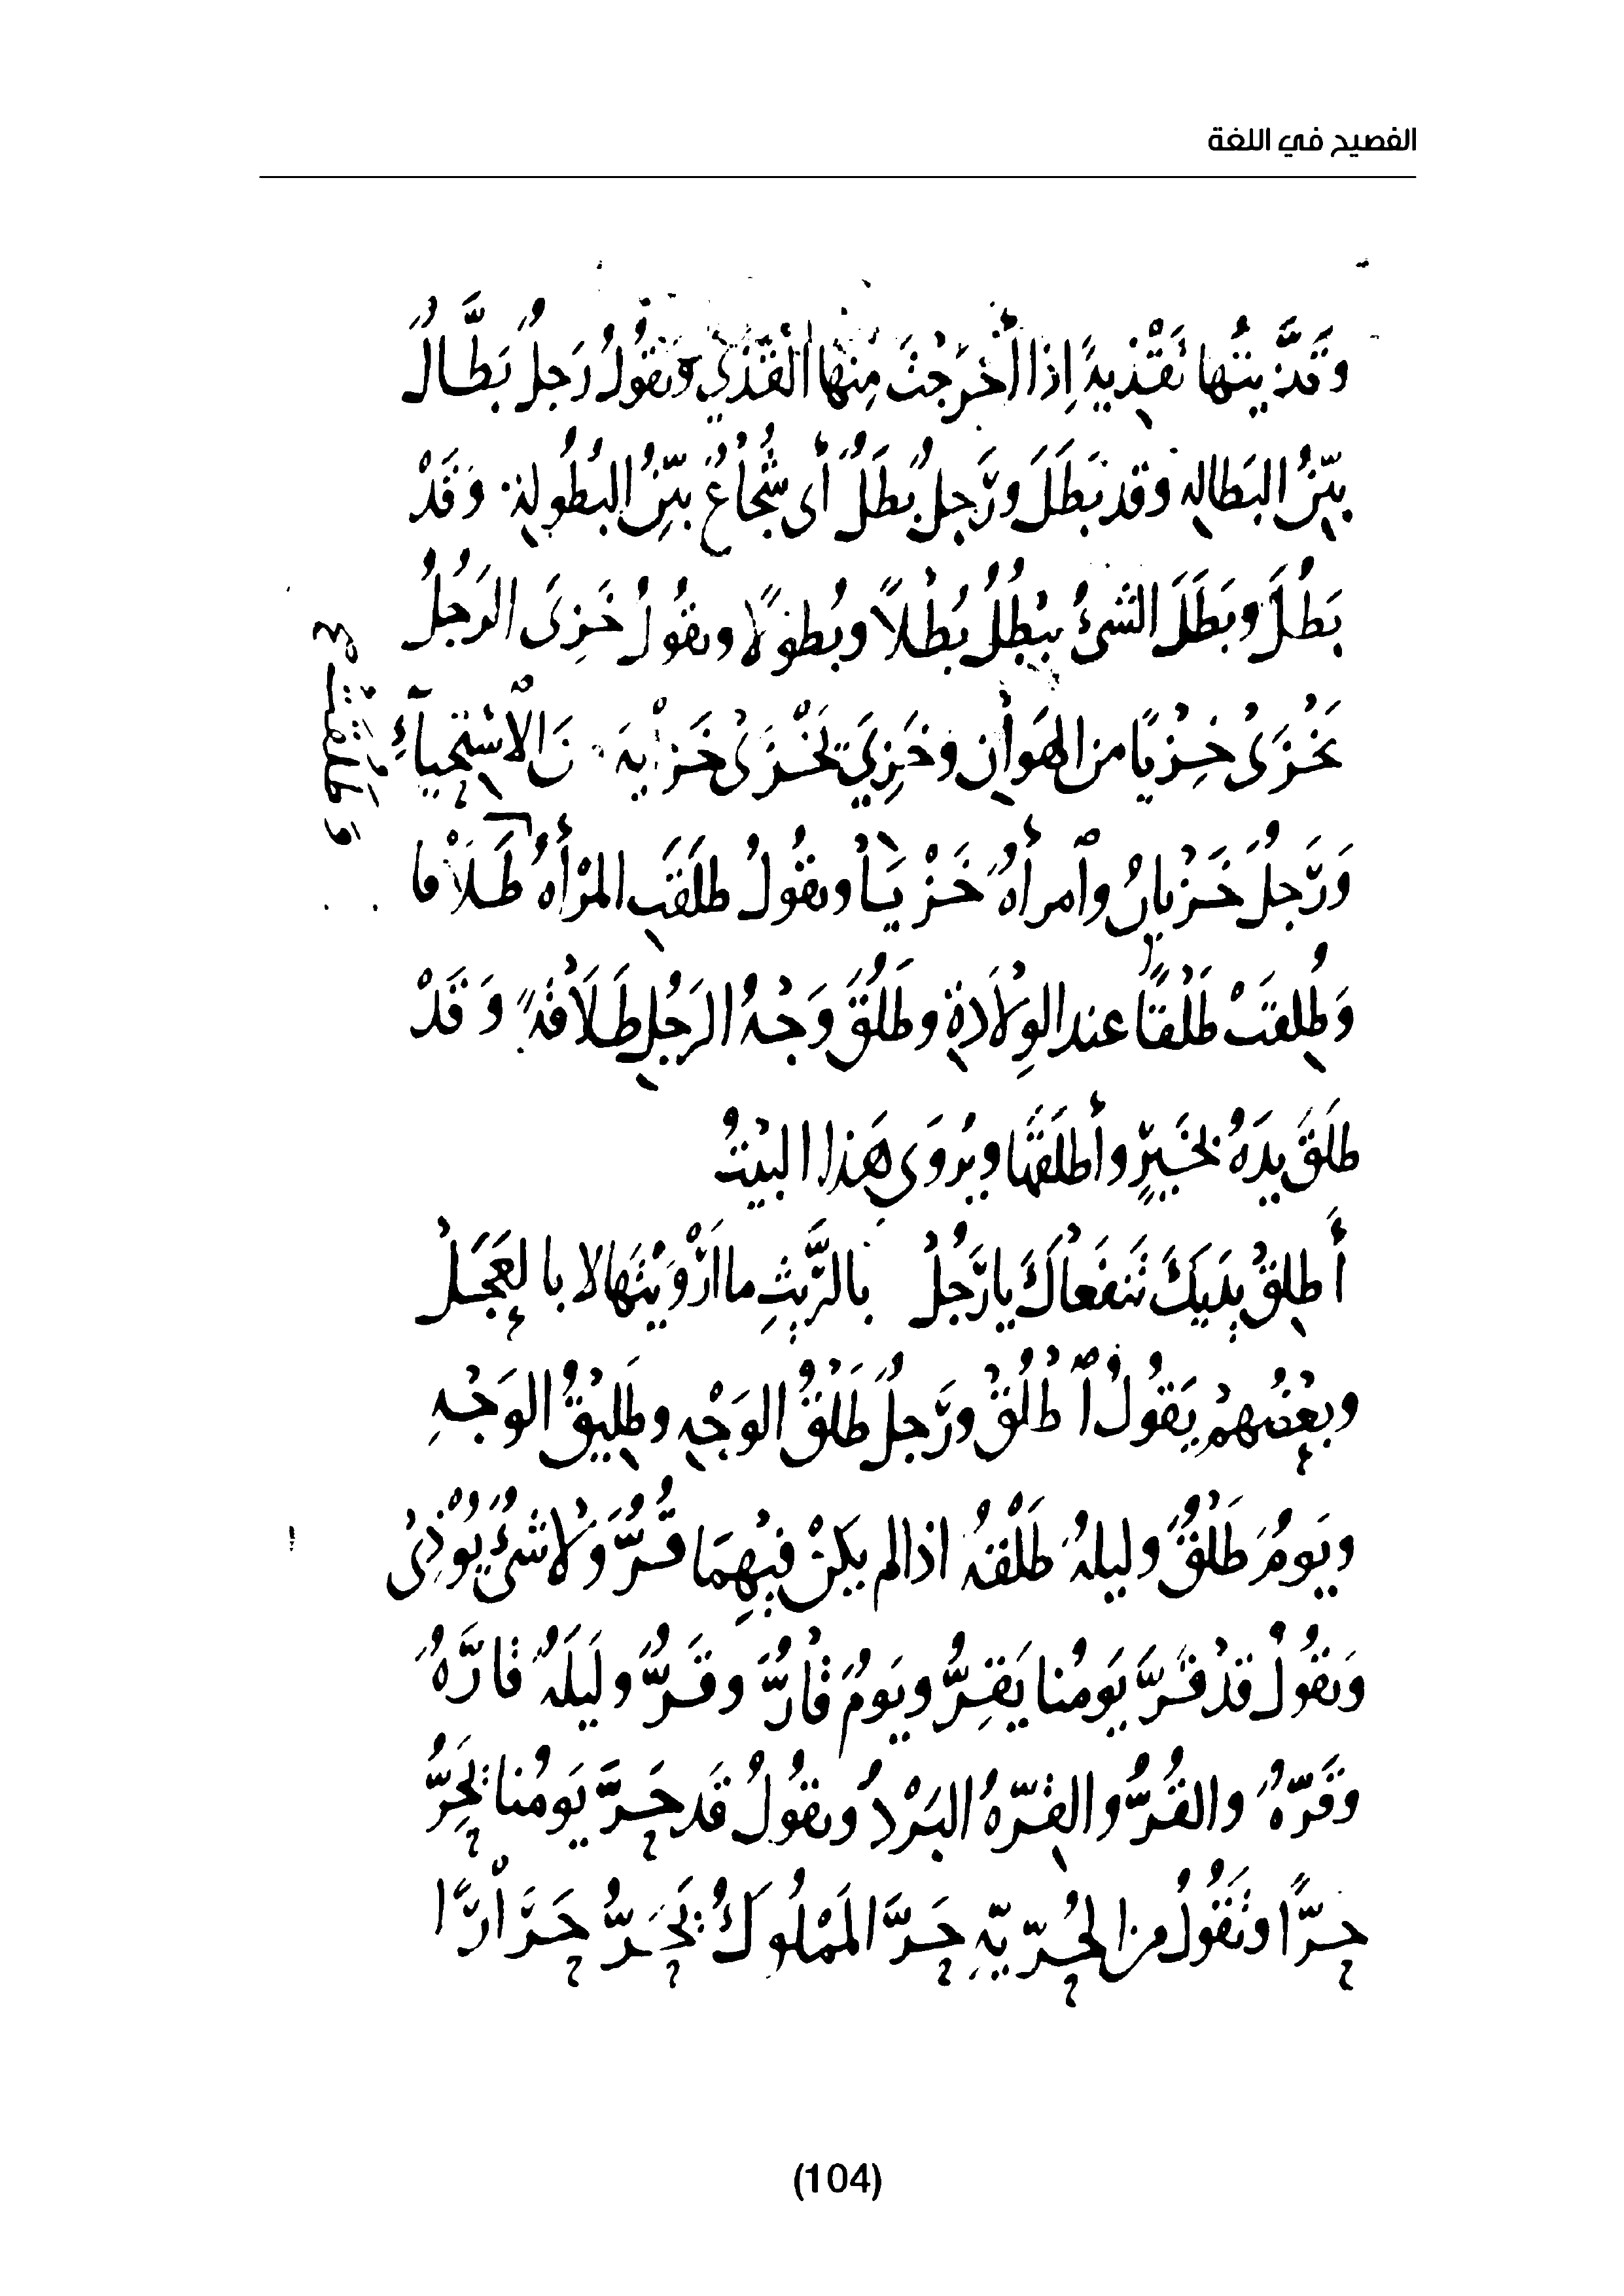 الفصيح في اللغة
وَقَذَّيتُها تَقْذِيةً إذا أَخرَجْتَ مِنْها القَذَى وتقُولُ رَجلٌ بَطَّالٌ
بيّنُ البَطاله وقد بَطَلَ ورَجلٌ بَطَلٌ أى شُجاعٌ بيّنُ البُطُولةِ وَقَدْ
بَطُلَ وبَطَلَ الشىءُ يبْطُلُ بُطْلاً وبُطولًا وتقُولُ خَزِىَ الرَجُلُ
يَخْزَى خِزْيًا من الهَوانِ وخَزِيَ يَخْزَى خَزايَه نَ الاسْتِحياءِ
وَرَجلٌ خَزْيانُ وٱمرأهٌ خَزْيَا وتقُولُ طلَقَتِ المرْأهُ طَلَاقا
وَطَلُقَتْ ع
وَطُلِقَتْ طَلْقًا عند الوِلادةِ وطَلُقَ وَجْهُ الرَجُلِ طَلَاقَةً وَقَدْ
طلَقَ يدَهُ بخَيرٍ وأَطلَقَها ويُروَى هَذا البيْتُ
أَطلِقْ يدَيكَ تَنفَعاكَ يا رَجُلْ بالرَّيثِ ما أَرْوَيْتَها لا بالعَجَلْ
وبعْضُهمْ يَقُولُ ٱطْلُقْ ورَجلٌ طَلْقُ الوَجْهِ وطَلِيقُ الوَجْهِ
ويَومٌ طَلْقٌ وليلهٌ طَلْقهٌ اذا لم يكنْ فِيْهِمَا قُرٌّ وَلا شىءٌ يُوْذِىْ
وَتقُولُ قدْ قَرَّ يَومُنا يَقِرُّ ويَومٌ قارٌّ وقَرٌّ وليلَهٌ قارَّهٌ
وقَرّهٌ والقُرُّ والقِرّهُ البَرْدُ وتقُولُ قَد حَرَّ يَومُنا يَحِرُّ
حرًّا وتَقُولُ من الحُرّيّهِ حَرَّ المَمْلُوكُ يَحَرُّ حَرَارًا
(104)